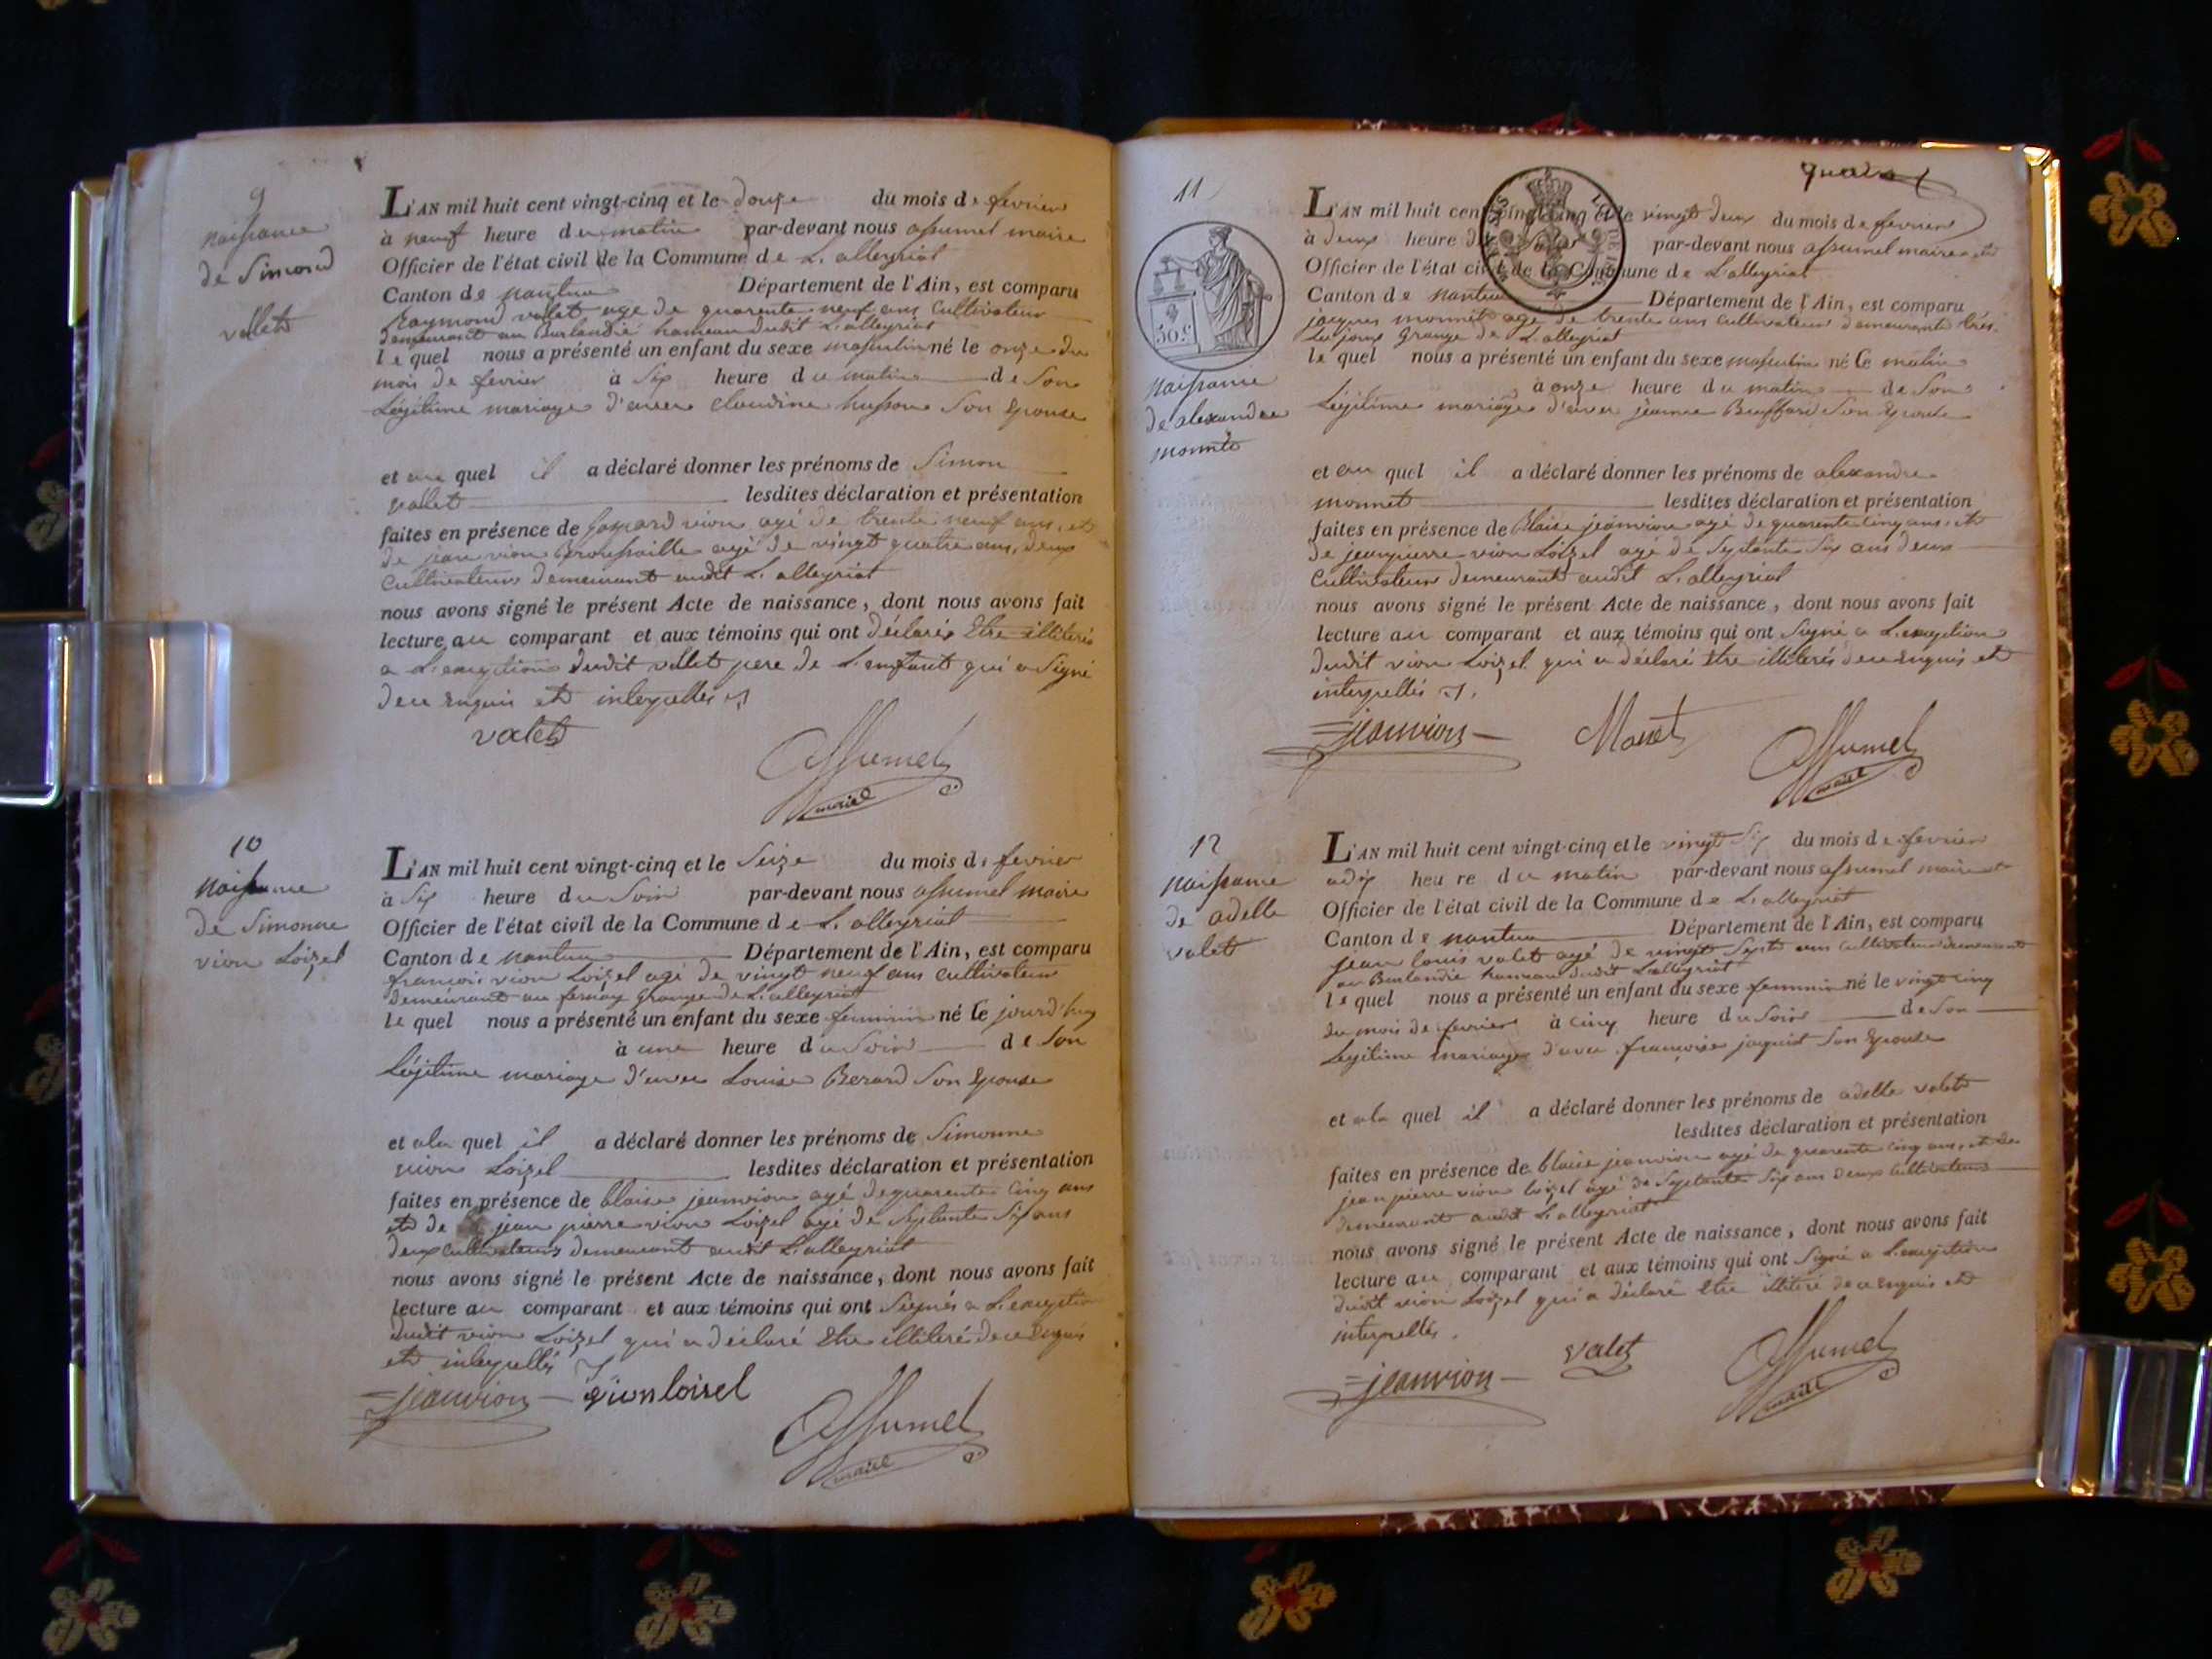 9
naissance
de Simond
vallet
L'AN mil huit cent vingt-cinq et le douze du mois de fevrier
à neuf heure du matin par-devant nous assumel maire
Officier de l'état civil de la Commune de L. alleyriat
Canton de nantua Département de l'Ain, est comparu
Raymond valet age de quarente neuf ans Cultivateur
demeurant au Burlandié hameau dudit L. alleyriat
le quel nous a présenté un enfant du sexe masculin né le onze du
mois de fevrier à Six heure du matin de Son
Légitime mariage d'avec Claudine husson Son Epouse
et au quel il a déclaré donner les prénoms de Simon
valet lesdites déclaration et présentation
faites en présence de gaspard vion agé de trente neuf ans, et
de jean vion Broussaille agé de vingt quatre ans, deux
Cultivateurs demeurant audit L. alleyriat
nous avons signé le présent Acte de naissance, dont nous avons fait
lecture au comparant et aux témoins qui ont déclarés Etre illiterés
a L'exception dudit vallet pere de L'enfant qui a Signé
de ce enquis et interpellés
valet
Assumel
maire
10
naissance
de Simonne
vion Loizel
L'AN mil huit cent vingt-cinq et le Seize du mois de fevrier
à Six heure du Soir par-devant nous assumel maire
Officier de l'état civil de la Commune de L. alleyriat
Canton de nantua Département de l'Ain, est comparu
francois vion Loizel agé de vingt neuf ans Cultivateur
demeurant au grange de L. alleyriat
le quel nous a présenté un enfant du sexe feminin né le jourd'huy
à une heure du Soir de Son
Légitime mariage d'avec Louise Berard Son Epouse
et a la quel il a déclaré donner les prénoms de Simonne
vion Loizel lesdites déclaration et présentation
faites en présence de blaise jeanvion agé de quarente Cinq ans
et de jean pierre vion Loizel agé de Septante Six ans
deux Cultivateurs demeurant audit L. alleyriat
nous avons signé le présent Acte de naissance, dont nous avons fait
lecture au comparant et aux témoins qui ont Signés a L'exception
dudit vion Loizel qui a déclaré Etre illiteré de ce Enquis
et interpellés
jeanvion vionloisel
Assumel
maire
11
50 c.
naissance
de alexandre
monnet
L'AN mil huit cent vingt-cinq et le vingt deux du mois de fevrier
à deux heure du Soir par-devant nous assumel maire et
Officier de l'état civil de la Commune de L. alleyriat
Canton de nantua Département de l'Ain, est comparu
jacques monnet agé de trente ans Cultivateur demeurant
grange de L. alleyriat
le quel nous a présenté un enfant du sexe masculin né le matin
à onze heure du matin de Son
Légitime mariage d'avec jeanne Buffard Son Epouse
et au quel il a déclaré donner les prénoms de alexandre
monnet lesdites déclaration et présentation
faites en présence de Blaise jeanvion agé de quarente Cinq ans. et
de jeanpierre vion Loizel agé de Septante Six ans deux
Cultivateurs demeurant audit L. alleyriat
nous avons signé le présent Acte de naissance, dont nous avons fait
lecture au comparant et aux témoins qui ont Signé a L. exception
dudit vion Loizel qui a déclaré Etre illiterés de ce Enquis et
interpellés
jeanvion Monet
Assumel
maire
12
naissance
de adelle
valet
L'AN mil huit cent vingt-cinq et le vingt Six du mois de fevrier
a dix heure du matin par-devant nous assumel maire et
Officier de l'état civil de la Commune de L. alleyriat
Canton de nantua Département de l'Ain, est comparu
jean louis valet agé de vingt Sept ans cultivateur demeurant
au Burlandié hameau dudit L. alleyriat
le quel nous a présenté un enfant du sexe feminin né le vingt cinq
du mois de fevrier à cinq heure du Soir de Son
Legitime mariage d'avec françoise jaquist Son Epouse
et a la quel il a déclaré donner les prénoms de adelle valet
lesdites déclaration et présentation
faites en présence de blaise jeanvion agé de quarente Cinq ans. et de
jean pierre vion loizel agé de Septante Six ans deux Cultivateurs
demeurant audit L. alleyriat
nous avons signé le présent Acte de naissance, dont nous avons fait
lecture au comparant et aux témoins qui ont Signé a L. exception
dudit vion Loizel qui a déclaré Etre illiteré de ce Enquis et
interpellés.
jeanvion valet
Assumel
maire